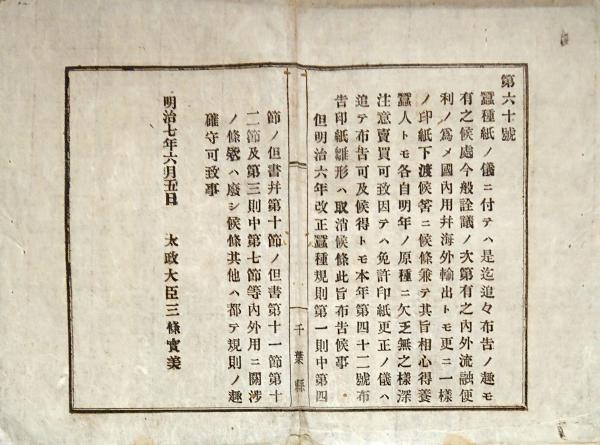 第六十號
蠶種紙ノ儀ニ付テハ是迄追々布告ノ趣モ
有之候處今般詮議ノ次第有之內外流融便
利ノ爲メ國內用幷海外輸出トモ更ニ一樣
ノ印紙下渡候筈ニ候條兼テ其旨相心得養
蠶人トモ各自明年ノ原種ニ欠乏無之樣深
注意賣買可致因テハ免許印紙更正ノ儀ハ
追テ布告可及候得トモ本年第四十二號布
告印紙雛形ハ取消候條此旨布告候事
但明治六年改正蠶種規則第一則中第四
千葉縣
節ノ但書幷第十節ノ但書第十一節第十
二節及第三則中第七節等內外用ニ關涉
ノ條欵ハ廢シ候條其他ハ都テ規則ノ趣
確守可致事
明治七年六月五日　太政大臣三條實美